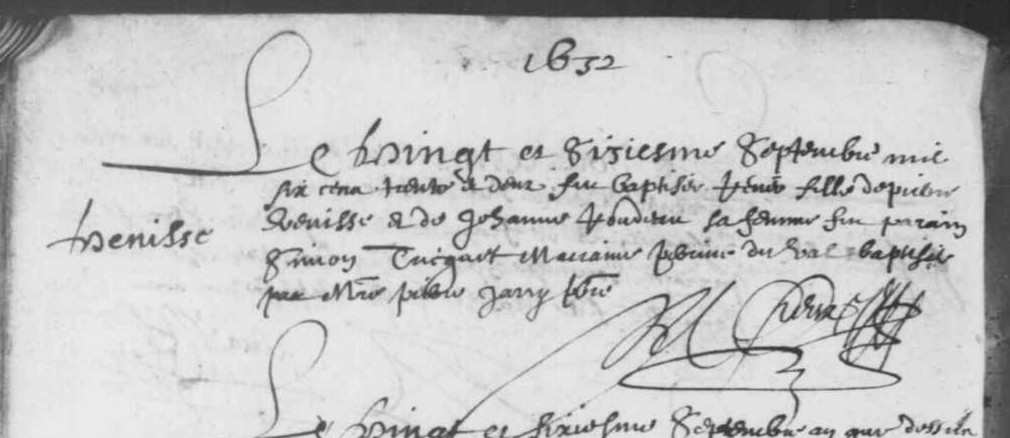 1632
Le vingt et sixiesme Septembre mil
six cens trente et deux fut baptisée Renée fille de pierre
Venisse et de Jehanne sa femme fut parain
Simon Turquet Maraine perrine du Val baptisée
par Mre pierre Jarry pbre
Venisse
Le vingt et sixiesme Septembre an que dessus